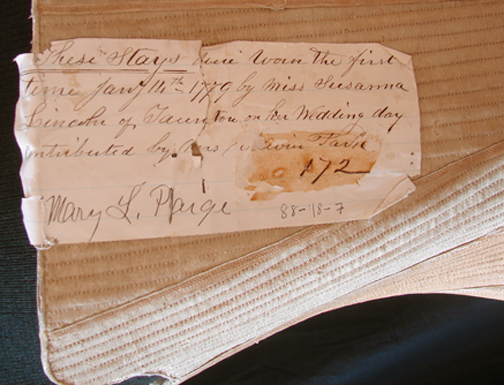 These Stays were Worn the first
time Jany 14th 1779 by Miss Susanna
Lincoln of Taunton on her Wedding day
ontributed by Mrs Park
172
Mary L. Paige
88-18-7